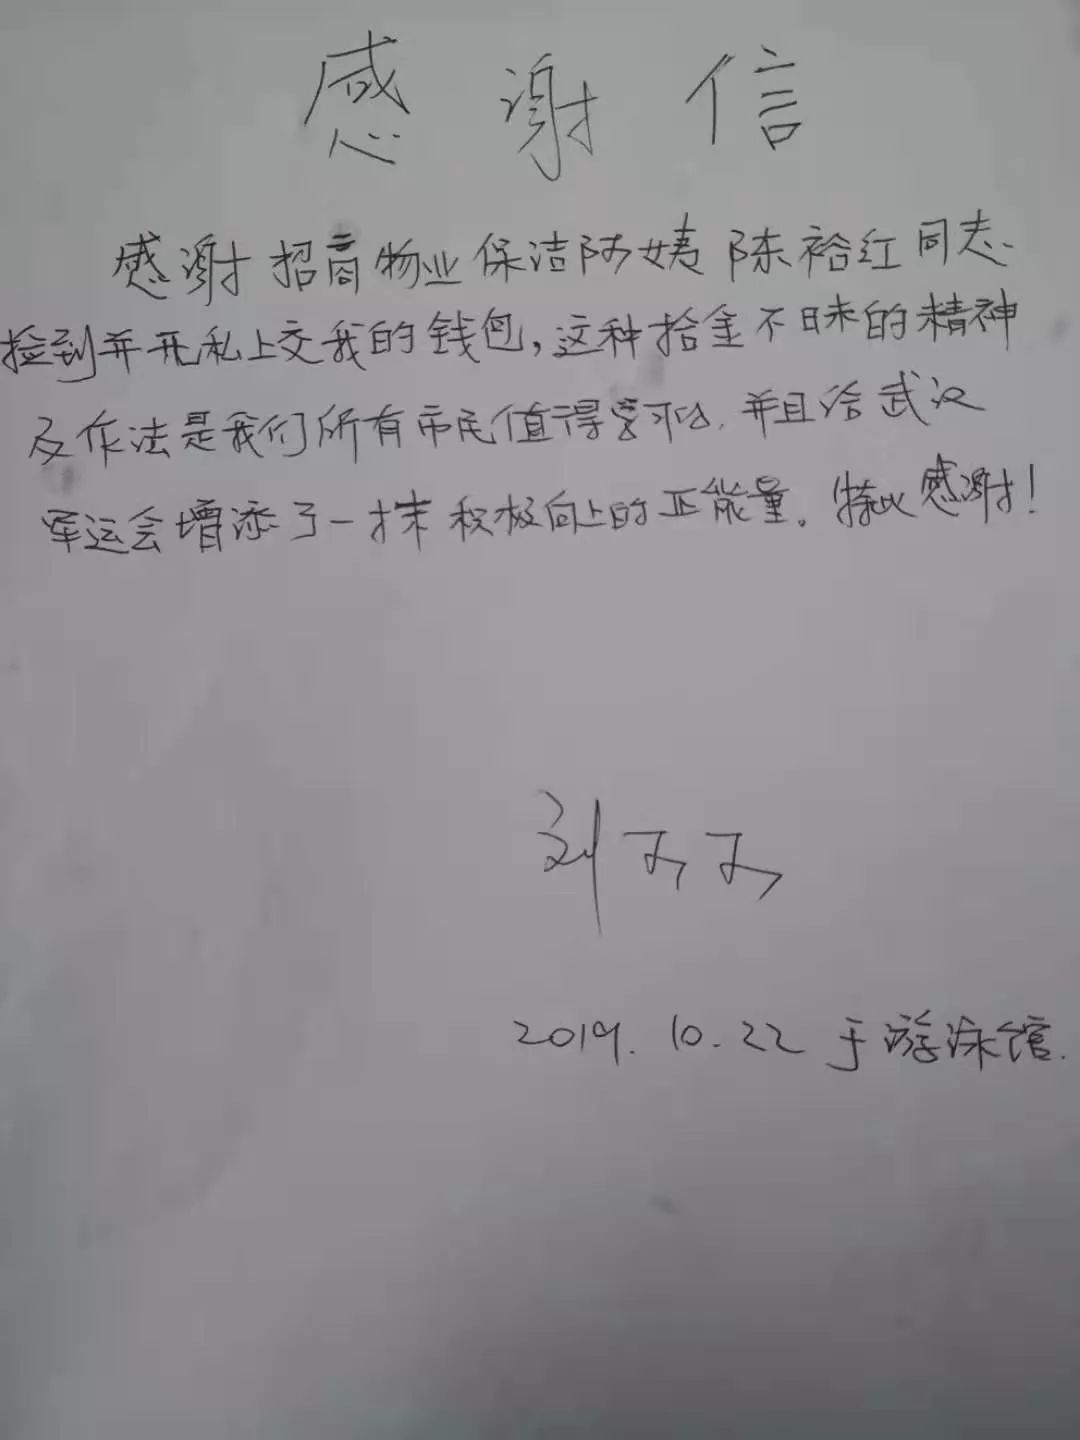 感谢信
感谢招商物业保洁阿姨陈裕红同志
捡到并无私上交我的钱包,这种拾金不昧的精神
及作法是我们所有市民值得学习的,并且给武汉
军运会增添了一抹积极向上的正能量。特此感谢!
刘
2019.10.22于游泳馆.